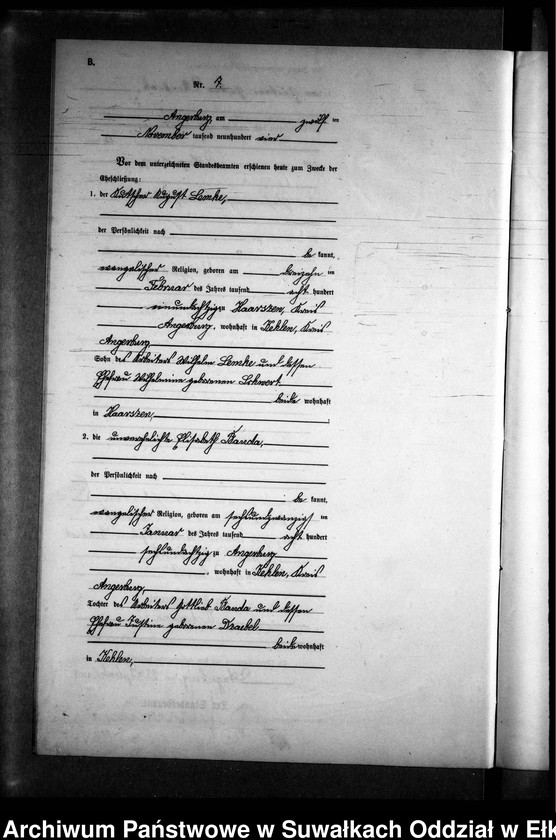 B.
Nr. 7.
Angerburg, am zwölften
November tausend neunhundert vier
Vor dem unterzeichneten Standesbeamten erschienen heute zum Zwecke der
Eheschließung:
1. der Kutscher August Lemke,
der Persönlichkeit nach
be kannt,
evangelischer Religion, geboren am dreizehn ten
Februar des Jahres tausend acht hundert
einundachtzig zu Haarszen, Kreis
Angerburg, wohnhaft in Kehlen, Kreis
Angerburg
Sohn des Arbeiters Wilhelm Lemke und dessen
Ehefrau Wilhelmine geborenen
beide wohnhaft
in Haarszen,
2. die unverehelichte Elisabeth Banda,
der Persönlichkeit nach
be kannt,
evangelischer Religion, geboren am sechsundzwanzigs ten
Januar des Jahres tausend acht hundert
sechsundachtzig zu Angerburg
, wohnhaft in Kehlen, Kreis
Angerburg,
Tochter des Arbeiters Gottlieb Banda und dessen
Ehefrau Justine geborenen
beide wohnhaft
in Kehlen,
Archiwum Państwowe w Suwałkach Oddział w Ełk